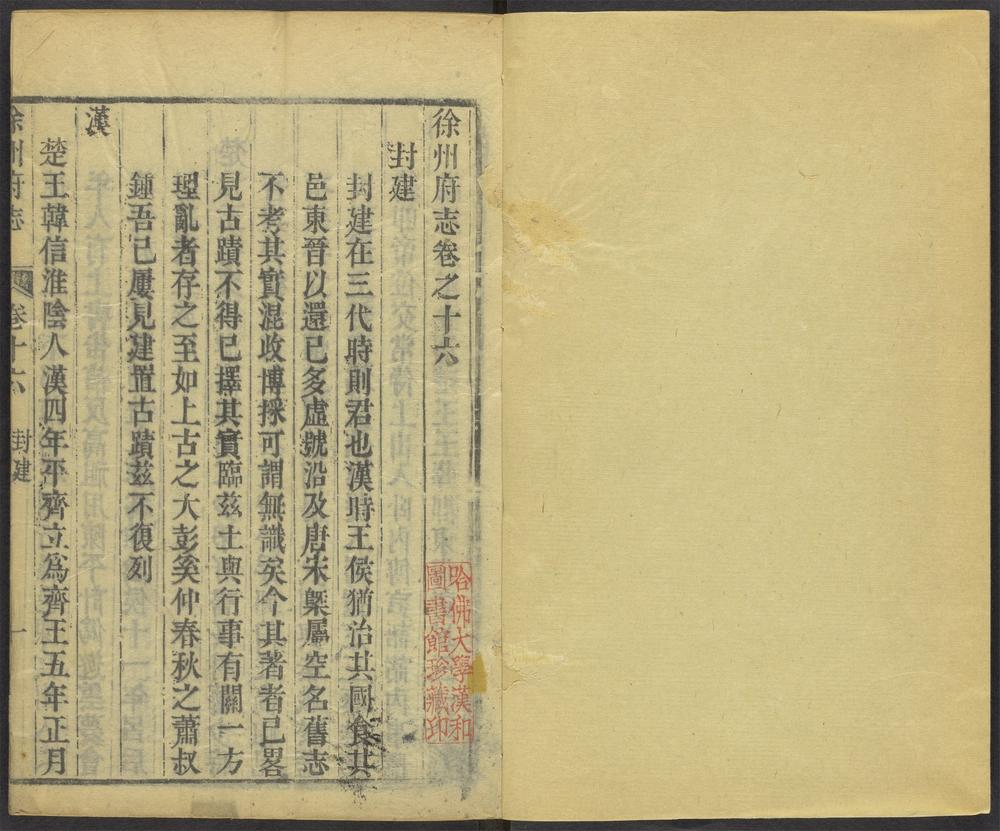 徐州府志卷之十六
封建
封建在三代時則君也漢時王侯猶治其國食其
邑東晉以還已多虛號沿及唐宋槩屬空名舊志
不考其實混收博採可謂無識矣今其著者已畧
見古蹟不得已擇其實臨茲土與行事有關一方
理亂者存之至如上古之大彭奚仲春秋之蕭叔
鍾吾已屢見建置古蹟茲不復列
漢
楚王韓信淮陰人漢四年平齊立爲齊王五年正月
徐州府志
卷十六
封建
一
哈佛大學漢和
圖書館珍藏印